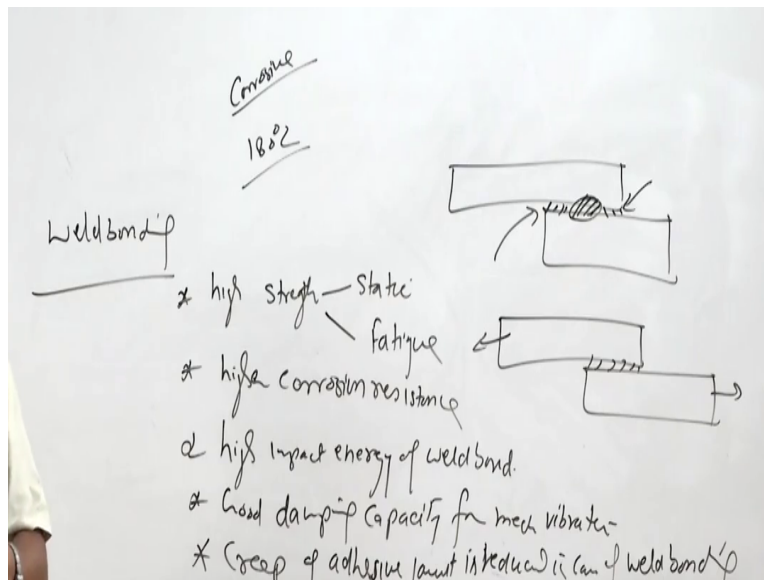 Corrosive
180°C
Weldbonding
* high strength — static
fatigue
* higher corrosion resistance
* high impact energy of weldbond.
* Good damping capacity for mech vibration
* Creep of adhesive joint is reduced in case of weldbonding